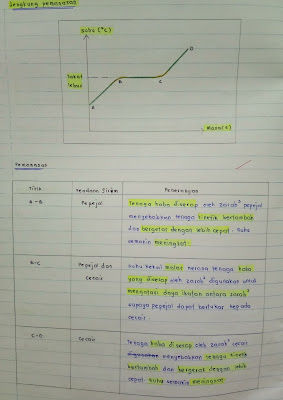 Lengkung pemanasan
Suhu (°C)
D
Takat
lebur
B
C
A
Masa (s)
Pemanasan
Titik
Keadaan Jirim
Penerangan
A-B
Pepejal
Tenaga haba diserap oleh zarah² pepejal
menyebabkan tenaga kinetik bertambah
dan bergetar dengan lebih cepat. Suhu
semakin meningkat.
B-C
Pepejal dan
cecair
Suhu kekal malar kerana tenaga haba
yang diserap oleh zarah² digunakan untuk
mengatasi daya ikatan antara zarah²
supaya pepejal dapat bertukar kepada
cecair.
C-D
Cecair
Tenaga haba diserap oleh zarah² cecair
menyebabkan tenaga kinetik
bertambah dan bergerak dengan lebih
cepat. Suhu semakin meningkat